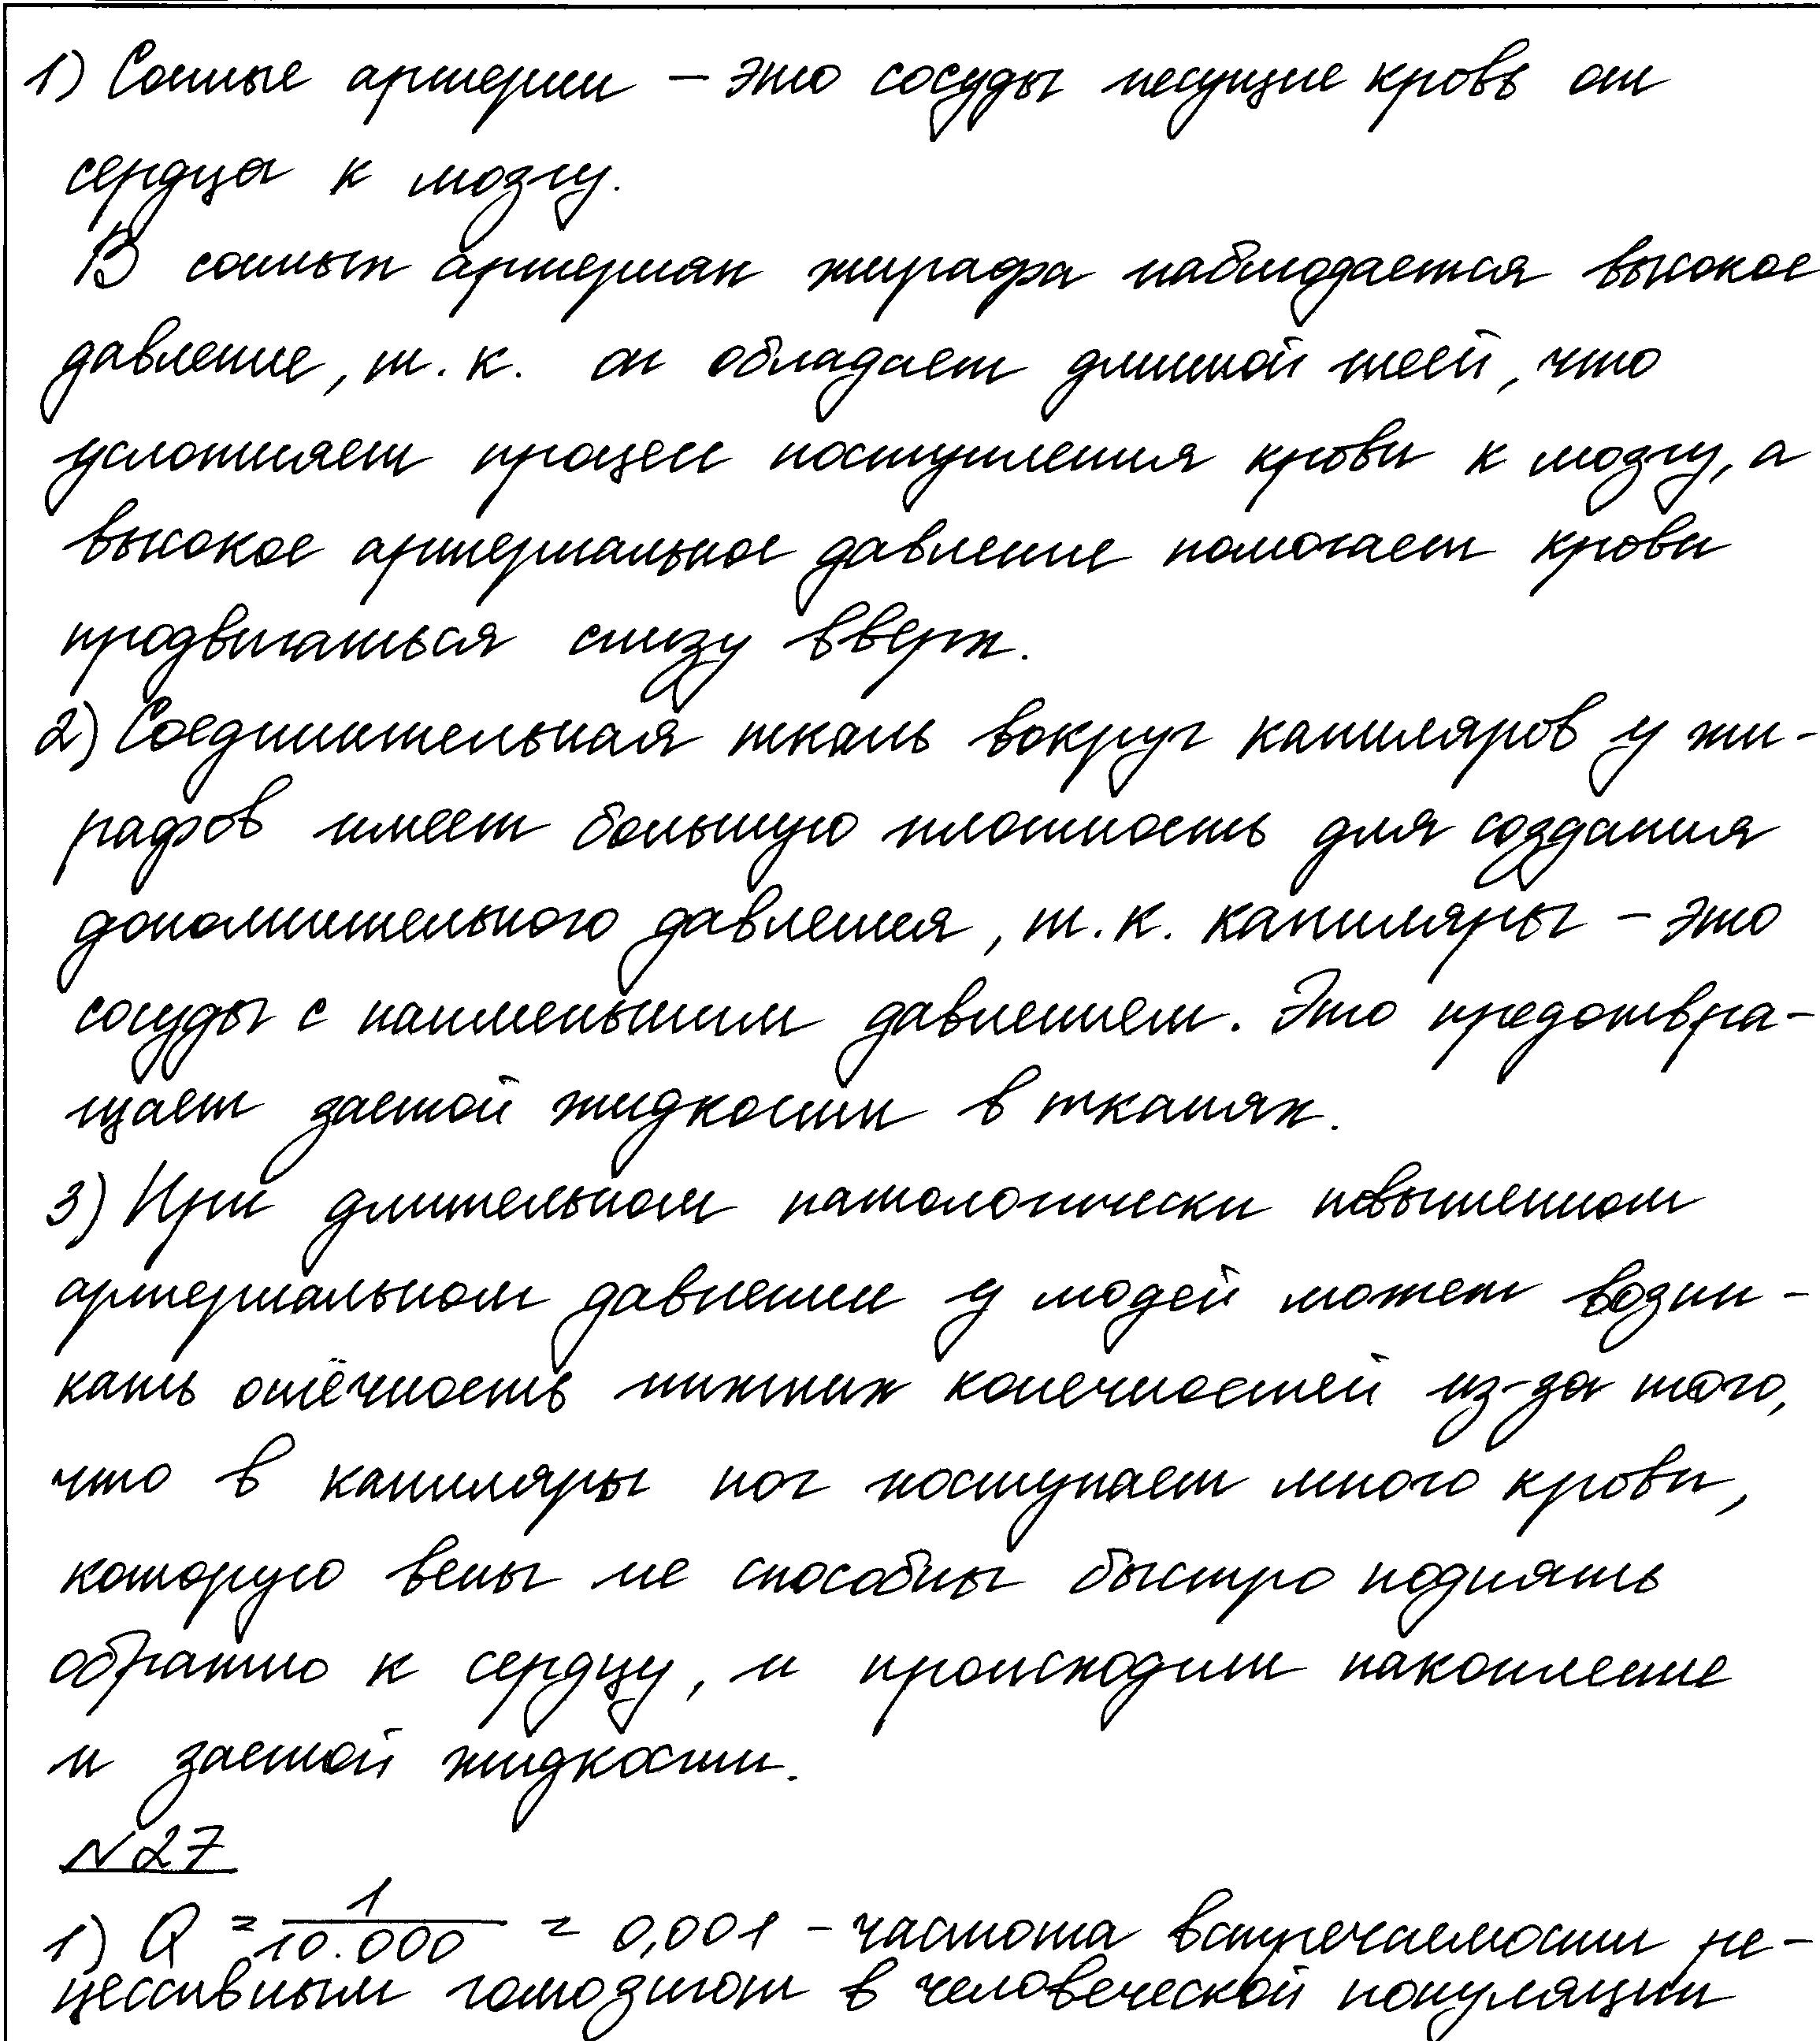 1) Сонные артерии – это сосуды несущие кровь от
сердца к мозгу.
В сонных артериях жирафа наблюдается высокое
давление, т. к. он обладает длинной шеей, что
усложняет процесс поступления крови к мозгу, а
высокое артериальное давление помогает крови
продвигаться снизу вверх.
2) Соединительная ткань вокруг капиляров у жи-
рафов имеет большую плотность для создания
дополнительного давления, т. к. капиляры – это
сосуды с наименьшим давлением. Это предотвра-
щает застой жидкости в тканях.
3) При длительном патологически повышенном
артериальном давлении у людей может возни-
кать отёчность нижних конечностей из-за того,
что в капиляры ног поступает много крови,
которую вены не способны быстро поднять
обратно к сердцу, и происходит накопление
и застой жидкости.
№27
1) Q = 1/10.000 = 0,001 – частота встречаемости ре-
цессивным гомозигот в человеческой популяции